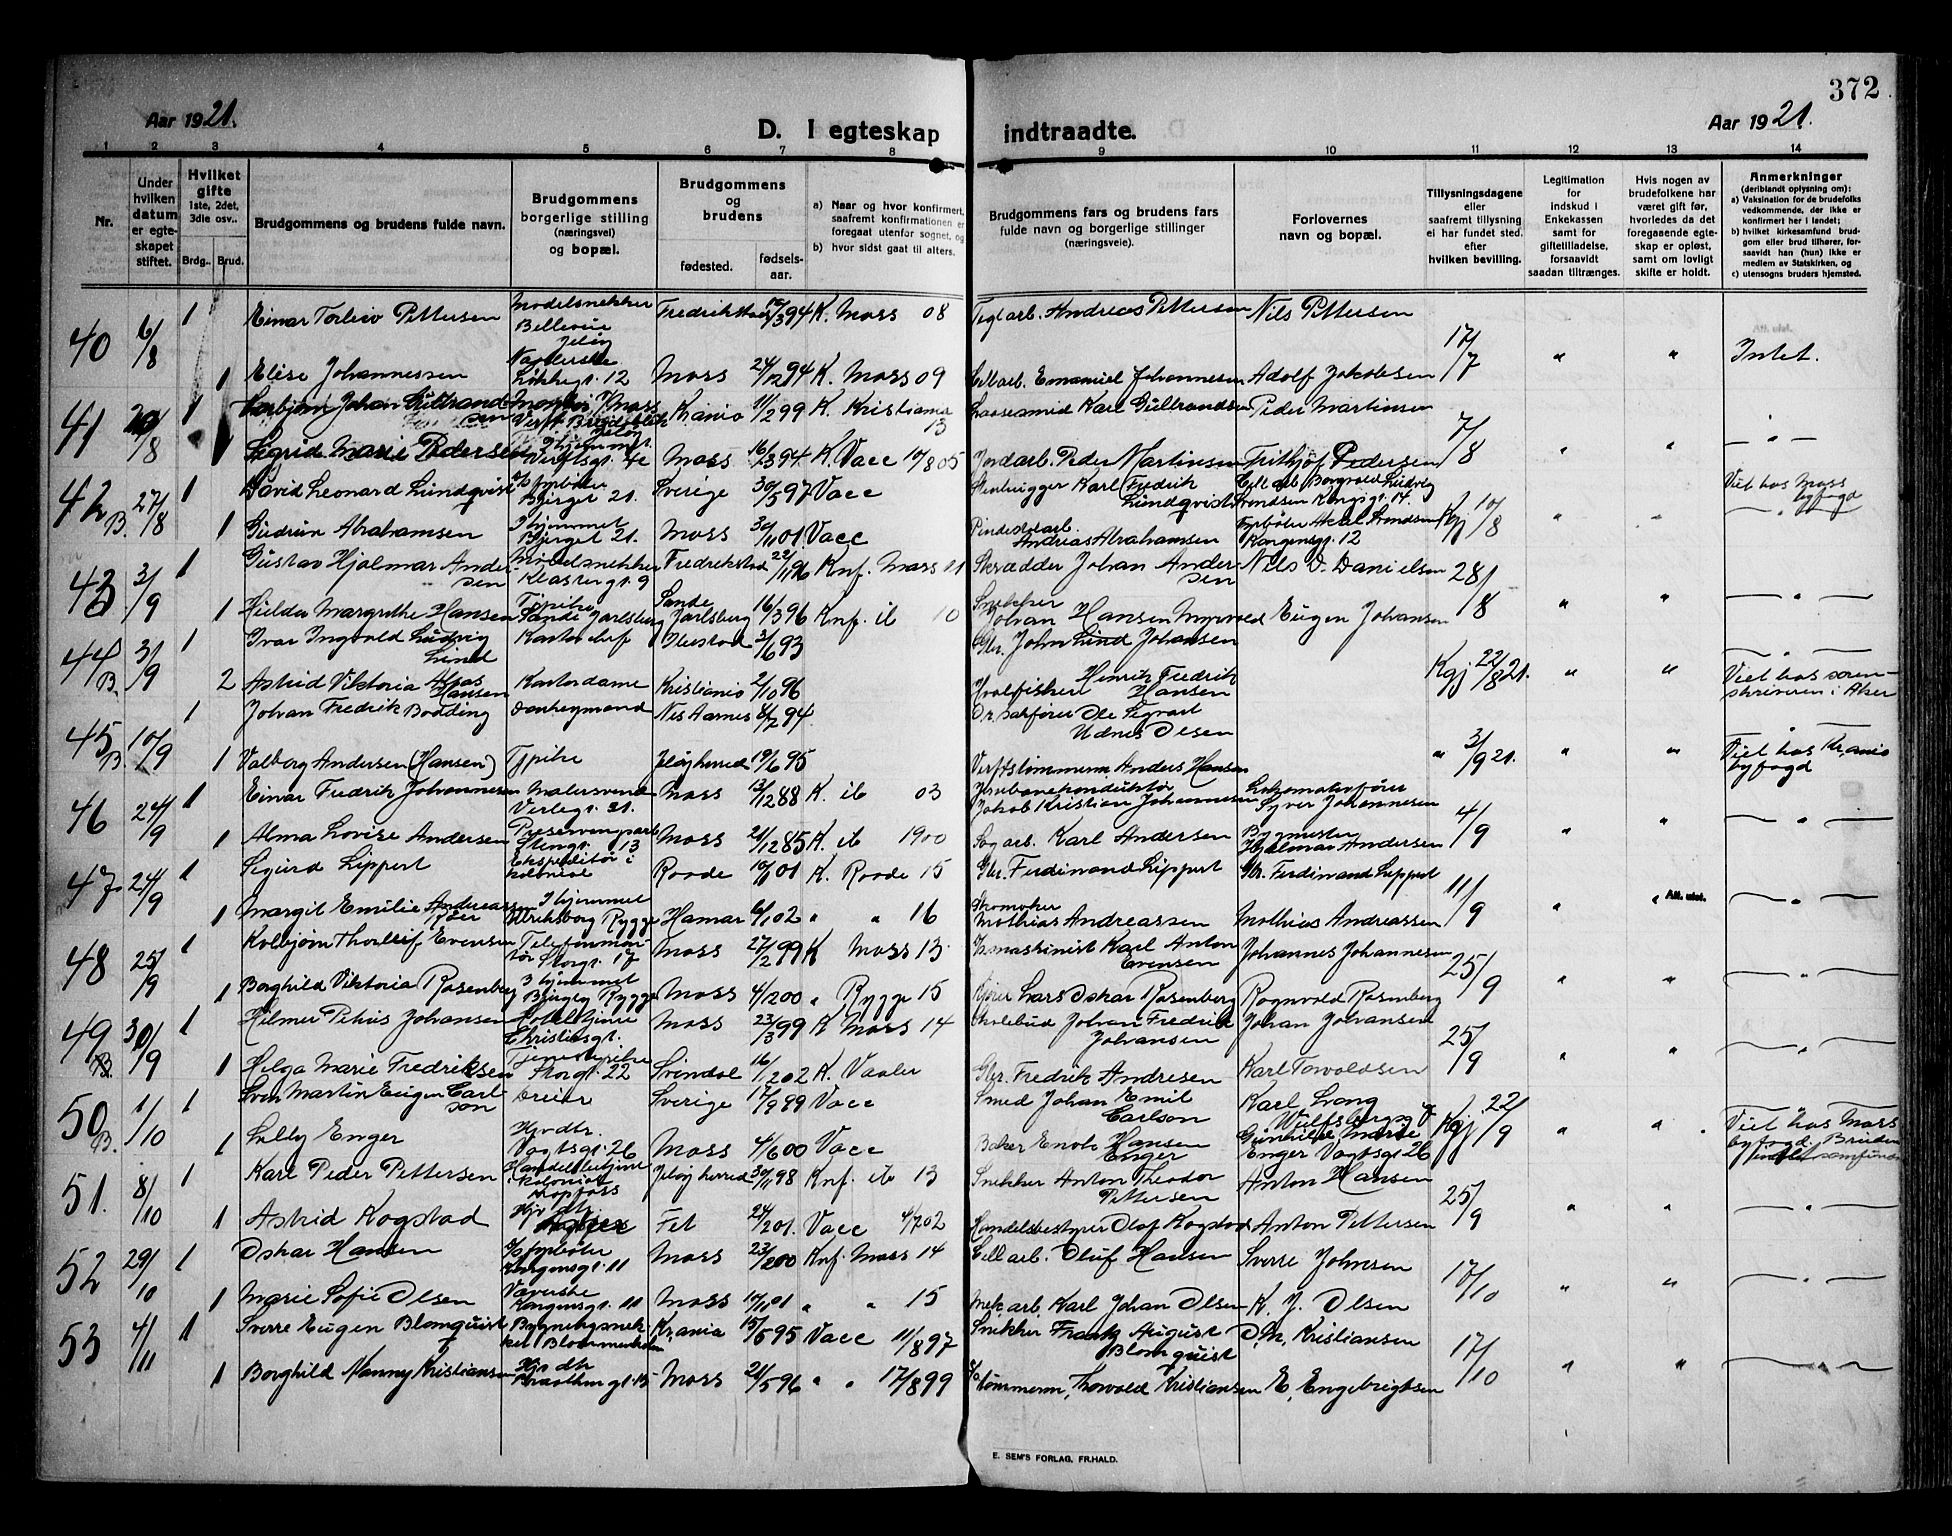 372
Aar 1921.
D. I egteskap indtraadte.
Aar 1921.
1 2 3 4 5 6 7 8 9 10 11 12 13 14
Nr.
Under hvilken datum er egteskapet stiftet.
Hvilket gifte 1ste, 2det, 3die osv..
Brdg.. Brud.
Brudgommens og brudens fulde navn.
Brudgommens borgerlige stilling (næringsvei) og bopæl.
Brudgommens og brudens
fødested. fødselsaar.
a) Naar og hvor konfirmert, saafremt konfirmationen er foregaat utenfor sognet, og
b) hvor sidst gaat til alters.
Brudgommens fars og brudens fars fulde navn og borgerlige stillinger (næringsveie).
Forlovernes navn og bopæl.
Tillysningsdagene eller saafremt tillysning ei har fundet sted. efter hvilken bevilling.
Legitimation for indskud i Enkekassen samt for giftetilladelse, forsaavidt saadan tiltrænges.
Hvis nogen av brudefolkene har været gift før, hvorledes da det foregaaende egteskap er opløst, samt om lovligt skifte er holdt.
Anmerkninger (deriblandt oplysning om):
a) Vaksination for de brudefolks vedkommende, der ikke er konfirmert her i landet;
b) hvilket kirkesamfund brudgom eller brud tilhører, forsaavidt han (hun) ikke er medlem av Statskirken, og
c) utensogns bruders hjemsted.
40 6/8 1 Einar Torleiv Pettersen Modelsnekker Bellevue Jeløy 94 K. Moss 08 Teglarb. Andreas Pettersen Nils Pettersen 17/7 " " Intet.
1 Elise Johannessen 12 Moss 24/12 94 K. Moss 09 Cellarb. Emanuel Johannesen Adolf Jakobsen
41 20/8 1 Torbjørn Johan Gulbrandsen Krania 11/2 99 K. Kristiania 13 Karl Gulbrandsen Peder Martinsen 7/8 " " — " —
1 Sigrid Marie Pedersen Verftsgt. 4c Moss 16/3 94 K. Vacc 10/8 05 Jordarb. Peder Martinsen Frithjof Pedersen
42 B. 27/8 1 David Leonard Lundqvist Bjerget 21. Sverige 30/5 97 Vacc Stenhugger Karl Fredrik Lundqvist Kgj 10/8 " " Viet hos Moss byfogd
1 Gudrun Abrahamsen I hjemmet Bjerget 21. Moss 30/11 01. Vacc Andreas Abrahamsen Kongensgt. 12
43 3/9 1 Gustav Hjalmar Andersen Modelsnekker Klostergt. 9 Fredrikstad 22/11 96 Knf. Moss 11 Skrædder Johan Andersen Nils D. Danielsen 28/8 " " — " —
1 Hilda Margrethe Hansen Sande Jarlsberg Sande Jarlsberg 16/3 96 Knf. ib 10 Johan Hansen Myrvold Eugen Johansen
44 B. 3/9 1 Ivar Ingvald Ludvig Lind 3/6 93 Gbr. John Lind Johansen Kgj 22/8 21. " " Viet hos sorenskriveren i Aker
2 Astrid Viktoria Hansen Kontordame Kristiania 2/10 96 Hvalfisker Henrik Fredrik Hansen
45 B. 10/9 1 Johan Fredrik Bodding Nes Aarnes 8/7 94. Ole Sigvart Udnes Olsen " 3/9 21. " " Viet hos Krania byfogd
1 Valborg Andersen (Hansen) Typike Jeløyherred 19/6 95 Verftstømmerm Anders Hansen
46 24/9 1 Einar Fredrik Johannesen Malersvend Moss 13/12 88 K. ib 03 Jernbanekonduktør Jakob Kristian Johannesen Lokomotivfører Syver Johannesen 4/9 " " — " —
1 Alma Lovise Andersen 13 Moss 21/12 85 K. ib 1900 Sagarb. Karl Andersen Bygmester Hjalmar Andersen
47. 24/9 1 Sigurd Lippert Ekspeditør i kolonial Raade 10/11 01 K. Raade 15 Gbr. Ferdinand Lippert Gbr. Ferdinand Lippert 11/9 " " Att. utst. — " —
1 Margit Emilie Andreassen Røer I hjemmet Ulriksborg Rygge Hamar 6/1 02 " " 16 Skomaker Mathias Andreassen Mathias Andreassen
48 25/9 1 Kolbjørn Thorleif Evensen Telefonmontør Storgt. 17 Moss 27/2 99 K Moss 13 Karl Anton Evensen Johannes Johannesen 25/9 " " — " —
1 Borghild Viktoria Rosenberg I hjemmet Rygge Moss 4/2 00 " Rygge 15 Lars Oskar Rosenberg Ragnvald Rosenberg
49 B. 30/9 1 Hilmer Petrus Johansen Christiesgt. Moss 23/3 99 K Moss 14 Johan Fredrik Johansen Johan Johansen 25/9 " " — " —
1 Helga Marie Fredriksen Tjenestepike Storgt. 22 Svindal 16/12 02 K. Vaaler Gbr. Fredrik Andresen Karl Torvaldsen
50 B. 1/10 1 Sven Martin Eugen Carlson Dreier Sverige 17/9 89 Vacc Smed Johan Emil Carlson Karl Lang Kgj 22/9 " " Viet hos Moss byfogd. Bruden
1 Lilly Enger Hjv dtr. Vogtsgt. 26 Moss 4/6 00 Vacc Baker Enok Hansen Enger Gunhilde Marie Enger Vogtsgt 26
51. 8/10 1 Karl Peder Pettersen Handelsbetjent Jeløy herred 30/11 98 Knf. ib 13 Snekker Anton Theodor Pettersen Anton Hansen 25/9 " " — " —
1 Astrid Kogstad Hjv dtr Fet 24/2 01. Vacc 4/7 02 Handelsbestyrer Olaf Kogstad Anton Pettersen
52 29/10 1 Oskar Hansen Kongensgt. 11 Moss 23/2 00 Knf. Moss 14 Cellarb. Oluf Hansen Sverre Johnsen 17/10 " " — " —
1 Marie Sofie Olsen Væverske Kongensgt. 11 Moss 10/11 01 " " 15 Mek. arb. Karl Johan Olsen K. J. Olsen
53 4/11 1 Sverre Eugen Blomquist Krania 15/5 95 Vacc 11/8 97 Snekker Frank August Blomquist Kristiansen 17/10 " " — " —
1 Borghild Nanny Kristiansen Hjv dtr Moss 21/5 96 " " 17/8 99 Tømmerm, Thorvald Kristiansen E, Engebrigtsen
E. SEM'S FORLAG, FR.HALD.